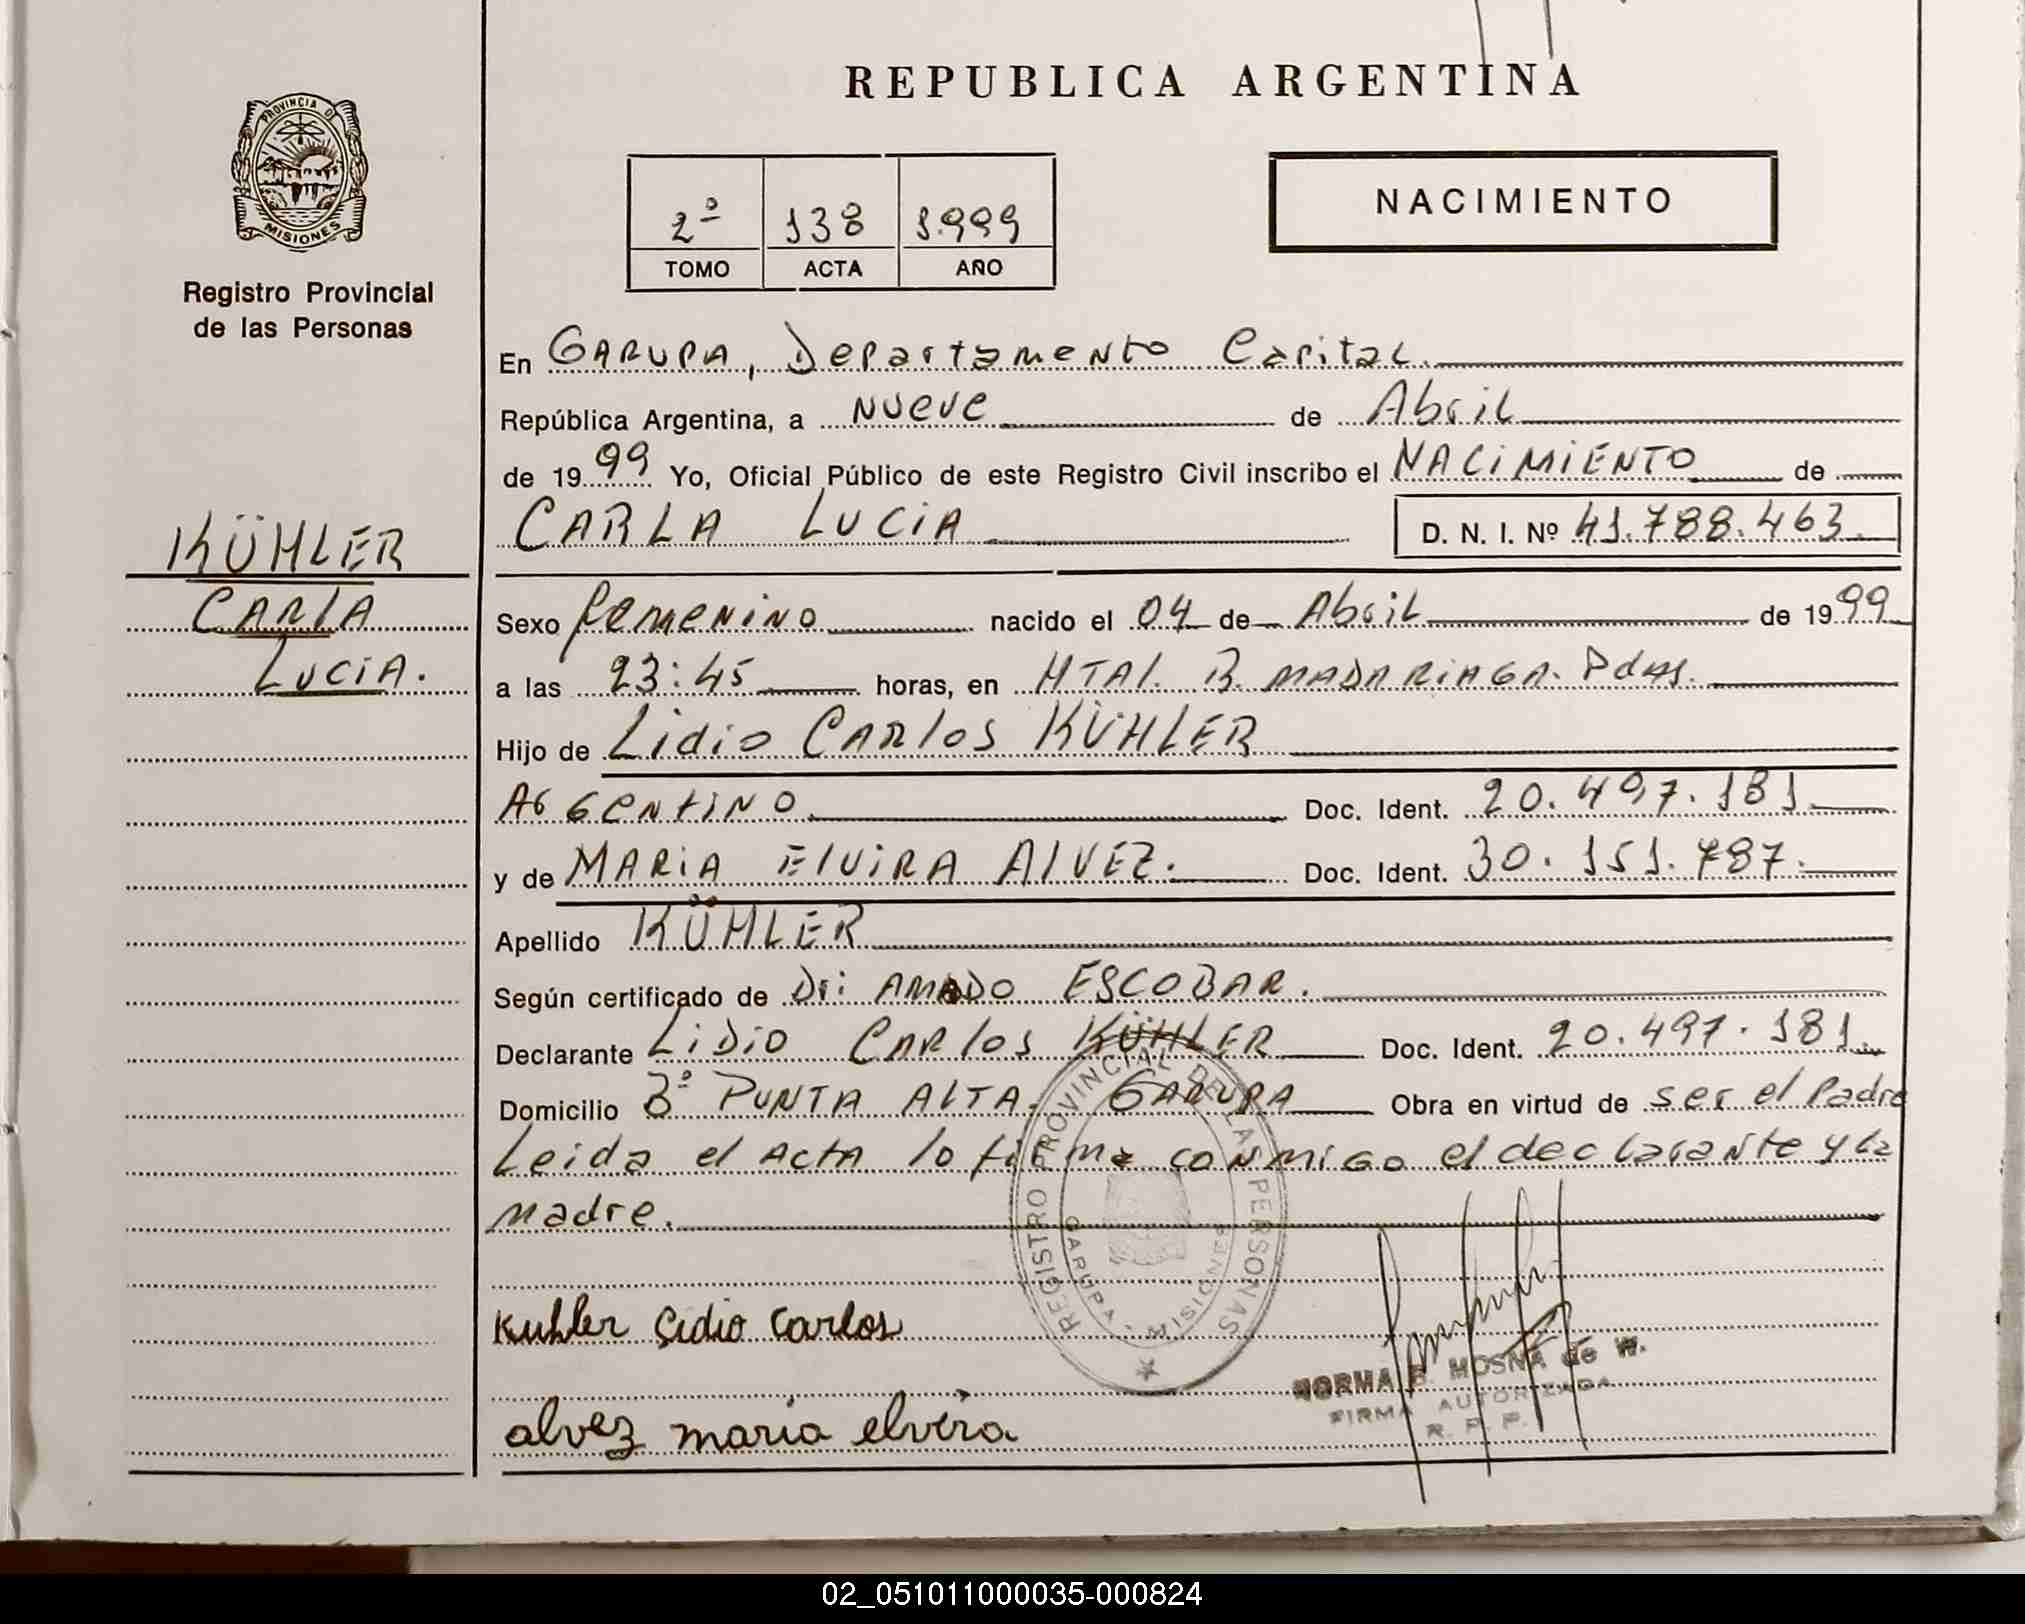 REPUBLICA ARGENTINA
PROVINCIA DE
MISIONES
Registro Provincial
de las Personas
2º 138 1.999
TOMO ACTA AÑO
NACIMIENTO
KÜHLER
CARLA
LUCIA.
En GARUPA, Departamento Capital.
República Argentina, a NUEVE de Abril
de 1999 Yo, Oficial Público de este Registro Civil inscribo el NACIMIENTO de
CARLA LUCIA D. N. I. Nº 41.788.463.
Sexo femenino nacido el 04 de Abril de 1999
a las 23:45 horas, en HTAl. R. MADARIAGA. Pdas.
Hijo de Lidio CARlos KÜHLER
Argentino Doc. Ident. 20.497.181.
y de MARIA ElVIRA AlVEZ. Doc. Ident. 30.151.787.
Apellido KÜHLER
Según certificado de Dr: AMADO ESCOBAR.
Declarante LIDIO CARlos KÜHLER Doc. Ident. 20.497.181.
Domicilio Bº PUNTA ALTA. GARUPA Obra en virtud de ser el Padre
Leida el ACTA lo firma conmigo el declarante y la
madre.
REGISTRO PROVINCIAL DE LAS PERSONAS
GARUPA - MISIONES
Kuhler Lidio Carlos
NORMA B. MOSNA de W.
FIRMA AUTORIZADA
R. P. P.
alvez maria elvira
02_051011000035-000824